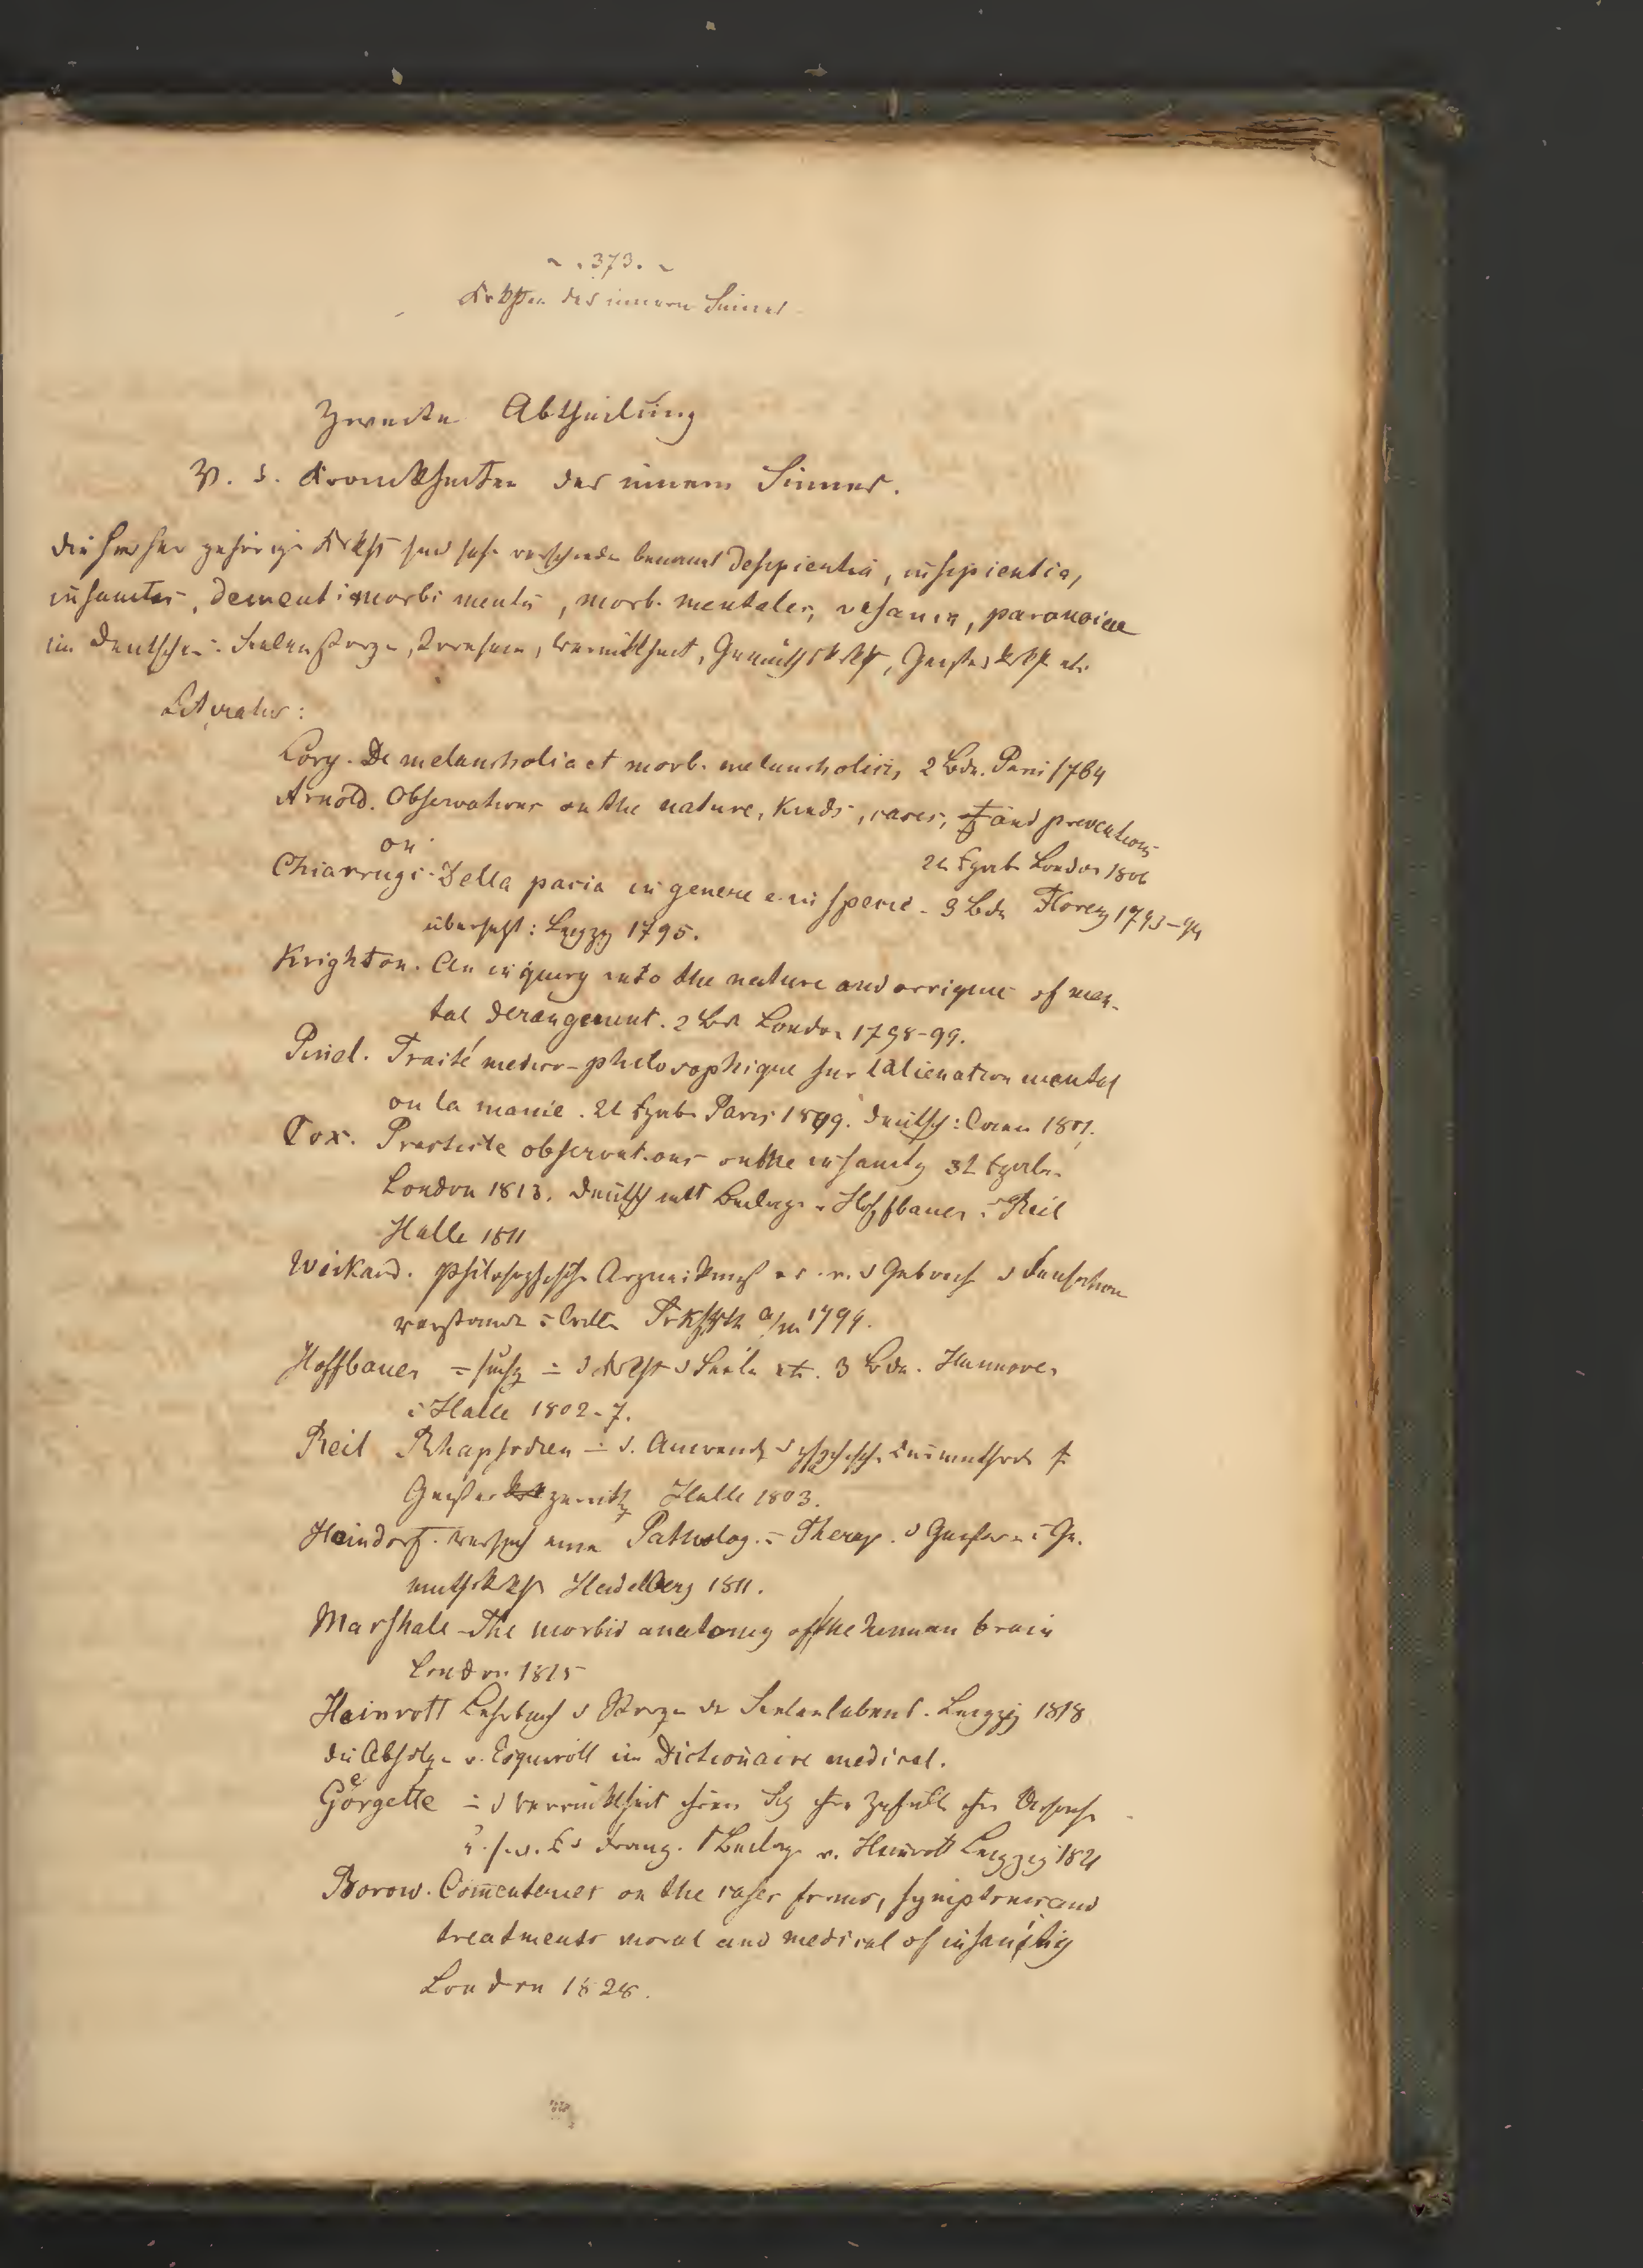 ~ . 373. ~
Krkhten des innern Sinnes
Zweite Abtheilung
V. d. Krankheiten des innern Sinnes.
Die hierher gehörige Krkht sind sehr verschieden benannt Desipientia, insipientia,
insanitas, Dementi morbi mentis, morb. mentales, vesania, paranoiae
im Deutschen: Seelenstörge, Irresein, Verrücktheit, Gemüthskrkht, Geisteskrkht etc
Literatur:
Lory. De melancholia et morb. melancholicis, 2 Bde. Paris 1764
Arnold. Observations on the nature, Kinds, cases, and preventions
2te Ausgabe London 1806
on
Chiarrugi. Della pacia in genere e in specie. 3 Bde Florenz 1793-94
übersetzt: Leipzig 1795.
Krighton. An inquery into the nature and orrigine of men-
tal derangement. 2 Bde London 1798-99.
Pinel. Traité medico-philosophique sur lalienation mental
ou la manie. 2t Ausgabe Paris 1809. Deutsch: Wien 1801.
Cox. Practicle observations on the insanity 3t Ausgabe
London 1813. Deutsch mit Beilage v Hoffbauer u Reil
Halle 1811
Weikard. philosophische Arzneikunst od. v. d Gebrech d Sensation
verstande u Willen Frkfrth a/m 1799.
Hoffbauer d Krkht d Seele etc. 3 Bde. Hannover
u Halle 1802-7.
Reil Rhapsodien d. Anwend d psychische Kurmethode
Geister zerrüttg Halle 1803.
Heindorf. Versuch einer Patholog. u Therap. d Geistes u Ge-
muthskrkht Heidelberg 1811.
Marshale The morbid anatomy of the human brain
London 1815
Heinrott Lehrbuch d Störge des Seelenlebens. Leipzig 1818
die Abhdlge v. Esquiroll im Dictionaire medical.
Görgette d Verrücktheit ihren Sitz ihre Zufälle ihre Ursache
u. s. w. A d Franz. Beilage v. Heinrott Leipzig 1821
Borow. Comentaries on the cases forms, symptomes and
treatments moral and medical of insanitiy
London 1828.